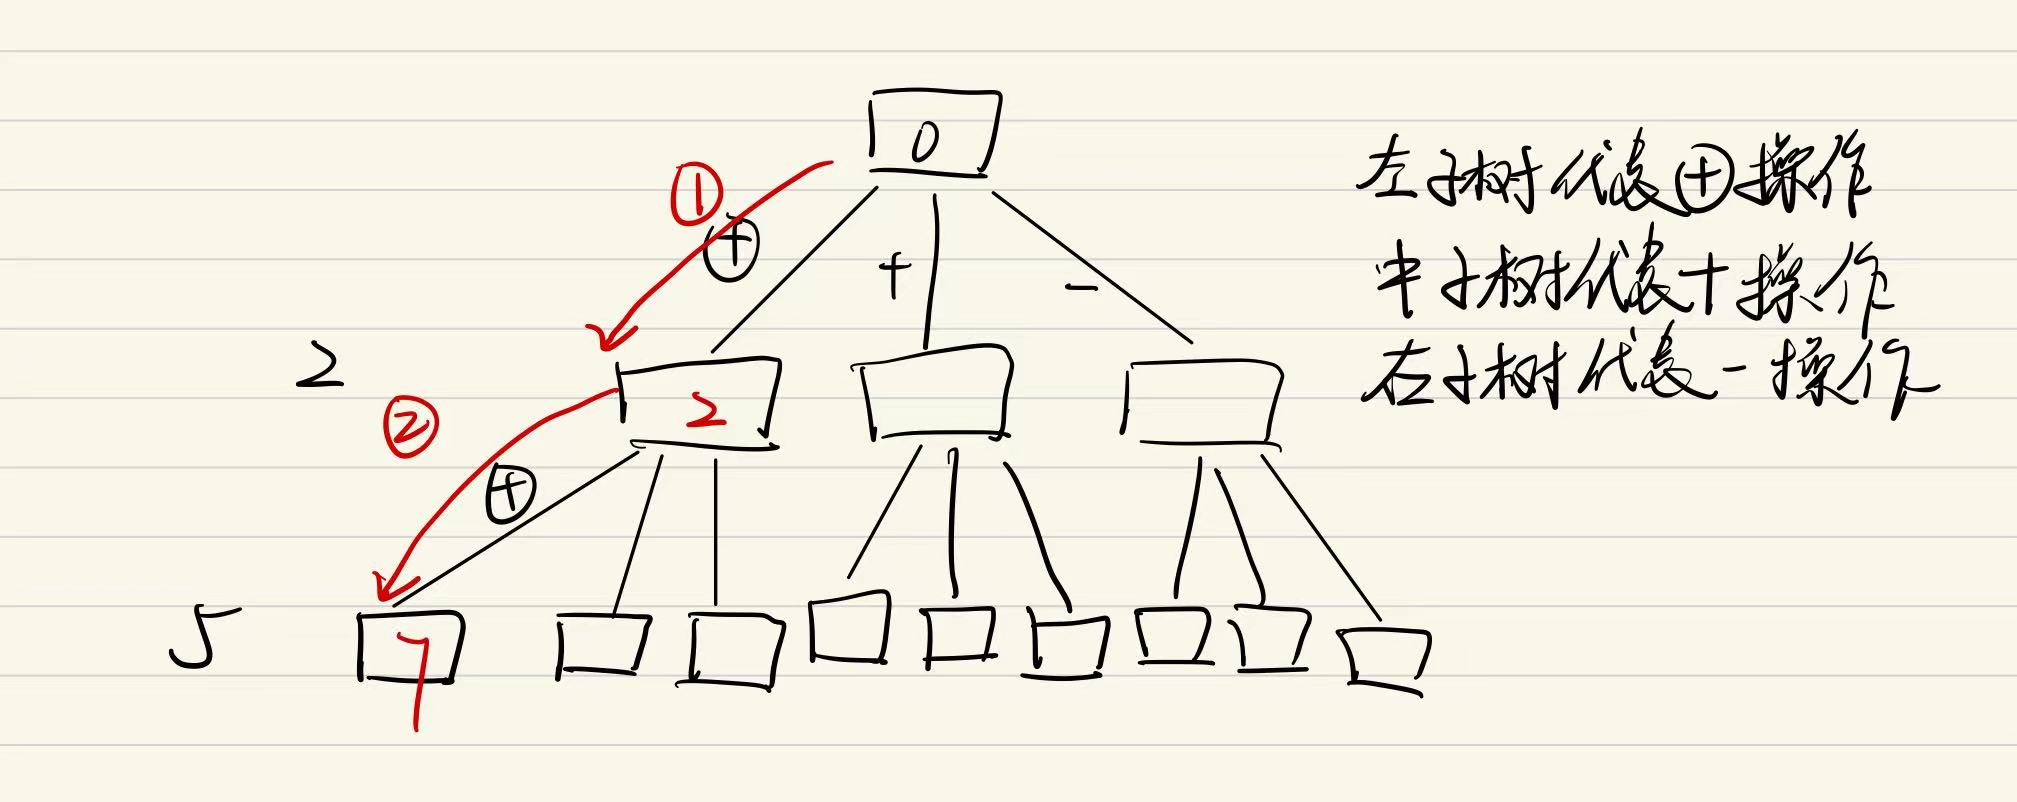 0
①
⊕
+
-
2
2
②
⊕
5
7
左子树代表⊕操作
中子树代表+操作
右子树代表-操作